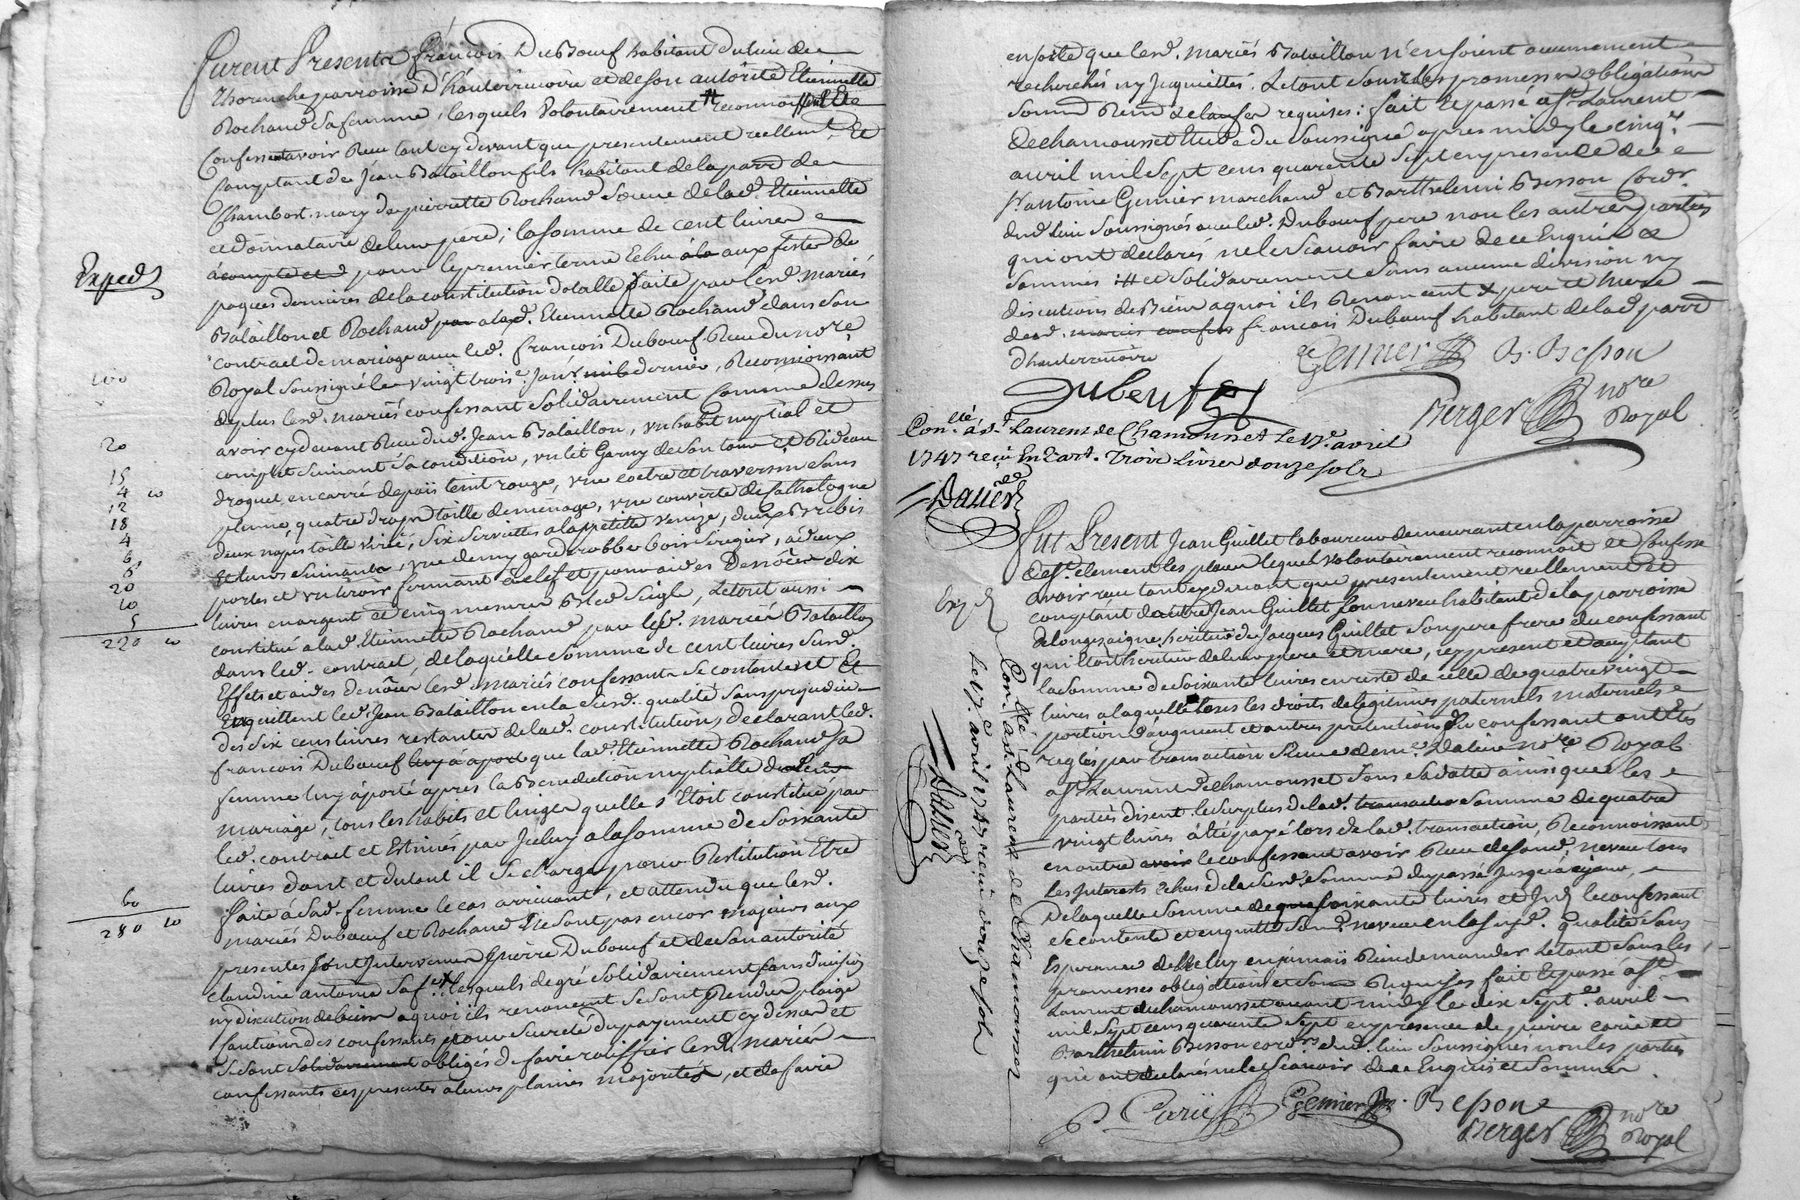 Furent Presents François DuBoeuf habitant du lieu de
Thorenche parroisse d'hauterivoire et de son autorité Etiennette
Rochand sa femme, lesquels volontairement # reconnoissent Et
Confessent avoir Reçu tant cy devant que presentement reellement Et
Comptant de Jean Bataillon fils habitant de la parr de
Chambost mary de pierrette Rochand Soeur de lad. Etiennette
et donnataire de leur pere, la somme de cent livres
acompte et pour le premier terme Echu ala aux festes de
paques dernieres de la constitution dotalle faite par lesd. mariés
Bataillon et Rochand par alad. Etiennette Rochand dans son
contract de mariage avec led. françois Duboeuf Reçu du nore
Royal Soussigné le vingt trois Janr. mil dernier, Reconnoissant
deplus lesd. mariés confessant solidairement Comme dessus
avoir cy devant Reçu dud. Jean Bataillon, un habit nuptial et
complet suivant sa condition, un lit Garny de son tour et Rideau
droguet en carré depois teint rouge, une coetre et traversin sans
plume, quatre draps toille de menage, une couverte de Cathalogne
deux napes toille virée, six serviettes alapetitte venize, deux brebis
et leurs suivants, une demy garderobbe bois serizier, à deux
portes et un tiroir fermant à clef et pour aides de noces dix
livres en argent et cinq mesures Bled Seigle, Letout aussi
constitué a lad. Etiennette Rochand par lesd. mariés Bataillon
dans led. contract, de laquelle somme de cent livres susd.
Effets et aides de nôces lesd. mariés confessants se contentent Et
Enquittent led. Jean Bataillon en la susd. qualité sans prejudice
des six cens livres restantes de lad. constitution, declarant led.
françois Duboeuf luy à aport que lad. Etiennette Rochand sa
femme luy à porté après la Benediction nuptialle de leur
mariage, tous les habits et linges quelle s'Etoit constitué par
led. contract et Estimés par Iceluy ala somme de Soixante
livres dont et du tout il Se charge pour Restitution Etre
faite à Sad. femme le cas arrivant, et attendu que lesd.
mariés Duboeuf et Rochand Ne sont pas encor majeurs aux
presentes sont Intervenus Pierre Duboeuf et de son autorité
claudine antoine Sa fe. lesquels de gré solidairement sans division
ny discution de biens aquoi ils renoncent Se sont Rendus plaige
cautions des confessants pour Sureté du payement cy dessus et
se sont solidairement obligés de faire ratiffier lesd. mariés
confessants ces presentes aleurs plaines majorités, et de faire
Exped
100
20
15
4 10
12
18
4
6
8
20
10
5
220 10
60
280 10
ensorte que lesd. mariés Bataillon n'en soient aucunement
recherchés ny Inquiettés. Letout sous les promesses obligations
soum Renon et clauses requises: fait Et passé a St. Laurent
de chamousset Etude du Soussigné apres midy le cinq.
avril mil sept cens quarente sept en presence de
sr. antoine Genier marchand et Barthelemi Besson Cordr.
dud lieu Soussignés avec led. Duboeuf pere non les autres parties
qui ont declarés ne le Scavoir faire de ce Enquis et
Sommés # et Solidairement Sans aucune division ny
discutions de Bien aquoi ils Renoncent x pere et mere
dud. maries confess francois Duboeuf habitant de lad parr
d'hauterivoire
Genier B. Besson
Dubeuf
Berger nore Royal
Conlé. à St. Laurent de Chamousset le 17e. avril
1747 reçu En 2 art. Trois Livres douze sols
Dalier
Fut Present Jean Guillet laboureur demeurant en la parroisse
de St. clement les places lequel volontairement reconnoit et Confesse
avoir reçu tant cy devant que presentement reellement et
comptant dautre Jean Guillet son neveu habitant de la parroisse
de longessaigne heritier de Jacques Guillet son pere frere du confessant
qui Etoit heritier de leurs pere et mere, cy present et acceptant
la somme de Soixante livres en reste de celle de quatre vingt
livres a laquelle tous les droits de legitimes paternels maternels
portion d'augment et autres pretentions du confessant ont Etés
reglés par transaction Reçue de me. Dalier nore. Royal
a St. Laurent de chamousset sous Sadatte ainsi que les
parties disent. le surplus de lad. transactio somme de quatre
vingt livres à été payé lors de lad. transaction, Reconnoissant
en outre avoir le confessant avoir Reçu de sond. neveu tous
les Interests Echus de la susd. somme du passé jusqu'à ce jour,
de laquelle somme de que soixante livres et Int. le confessant
se contente et en quitte Son d. neveu en la susd. qualité sans
Esperance de Ne luy en jamais Rien demander Letout sous les
promesses obligations et soum Requises fait Et passé a St.
Laurent de chamousset avant midy le dix Sept. avril
mil Sept cens quarente Sept en presence de pierre carie et
Barthelemi Besson cordrs. dud. lieu Soussignés non les parties
qui ont declarés ne le Scavoir de ce Enquis et Sommés.
P. Carie Genier B. Besson
Berger nore Royal
Exped
Conlé. à St. Laurent de Chamousset
le 17e. avril 1747 reçu douze sols
Dalier